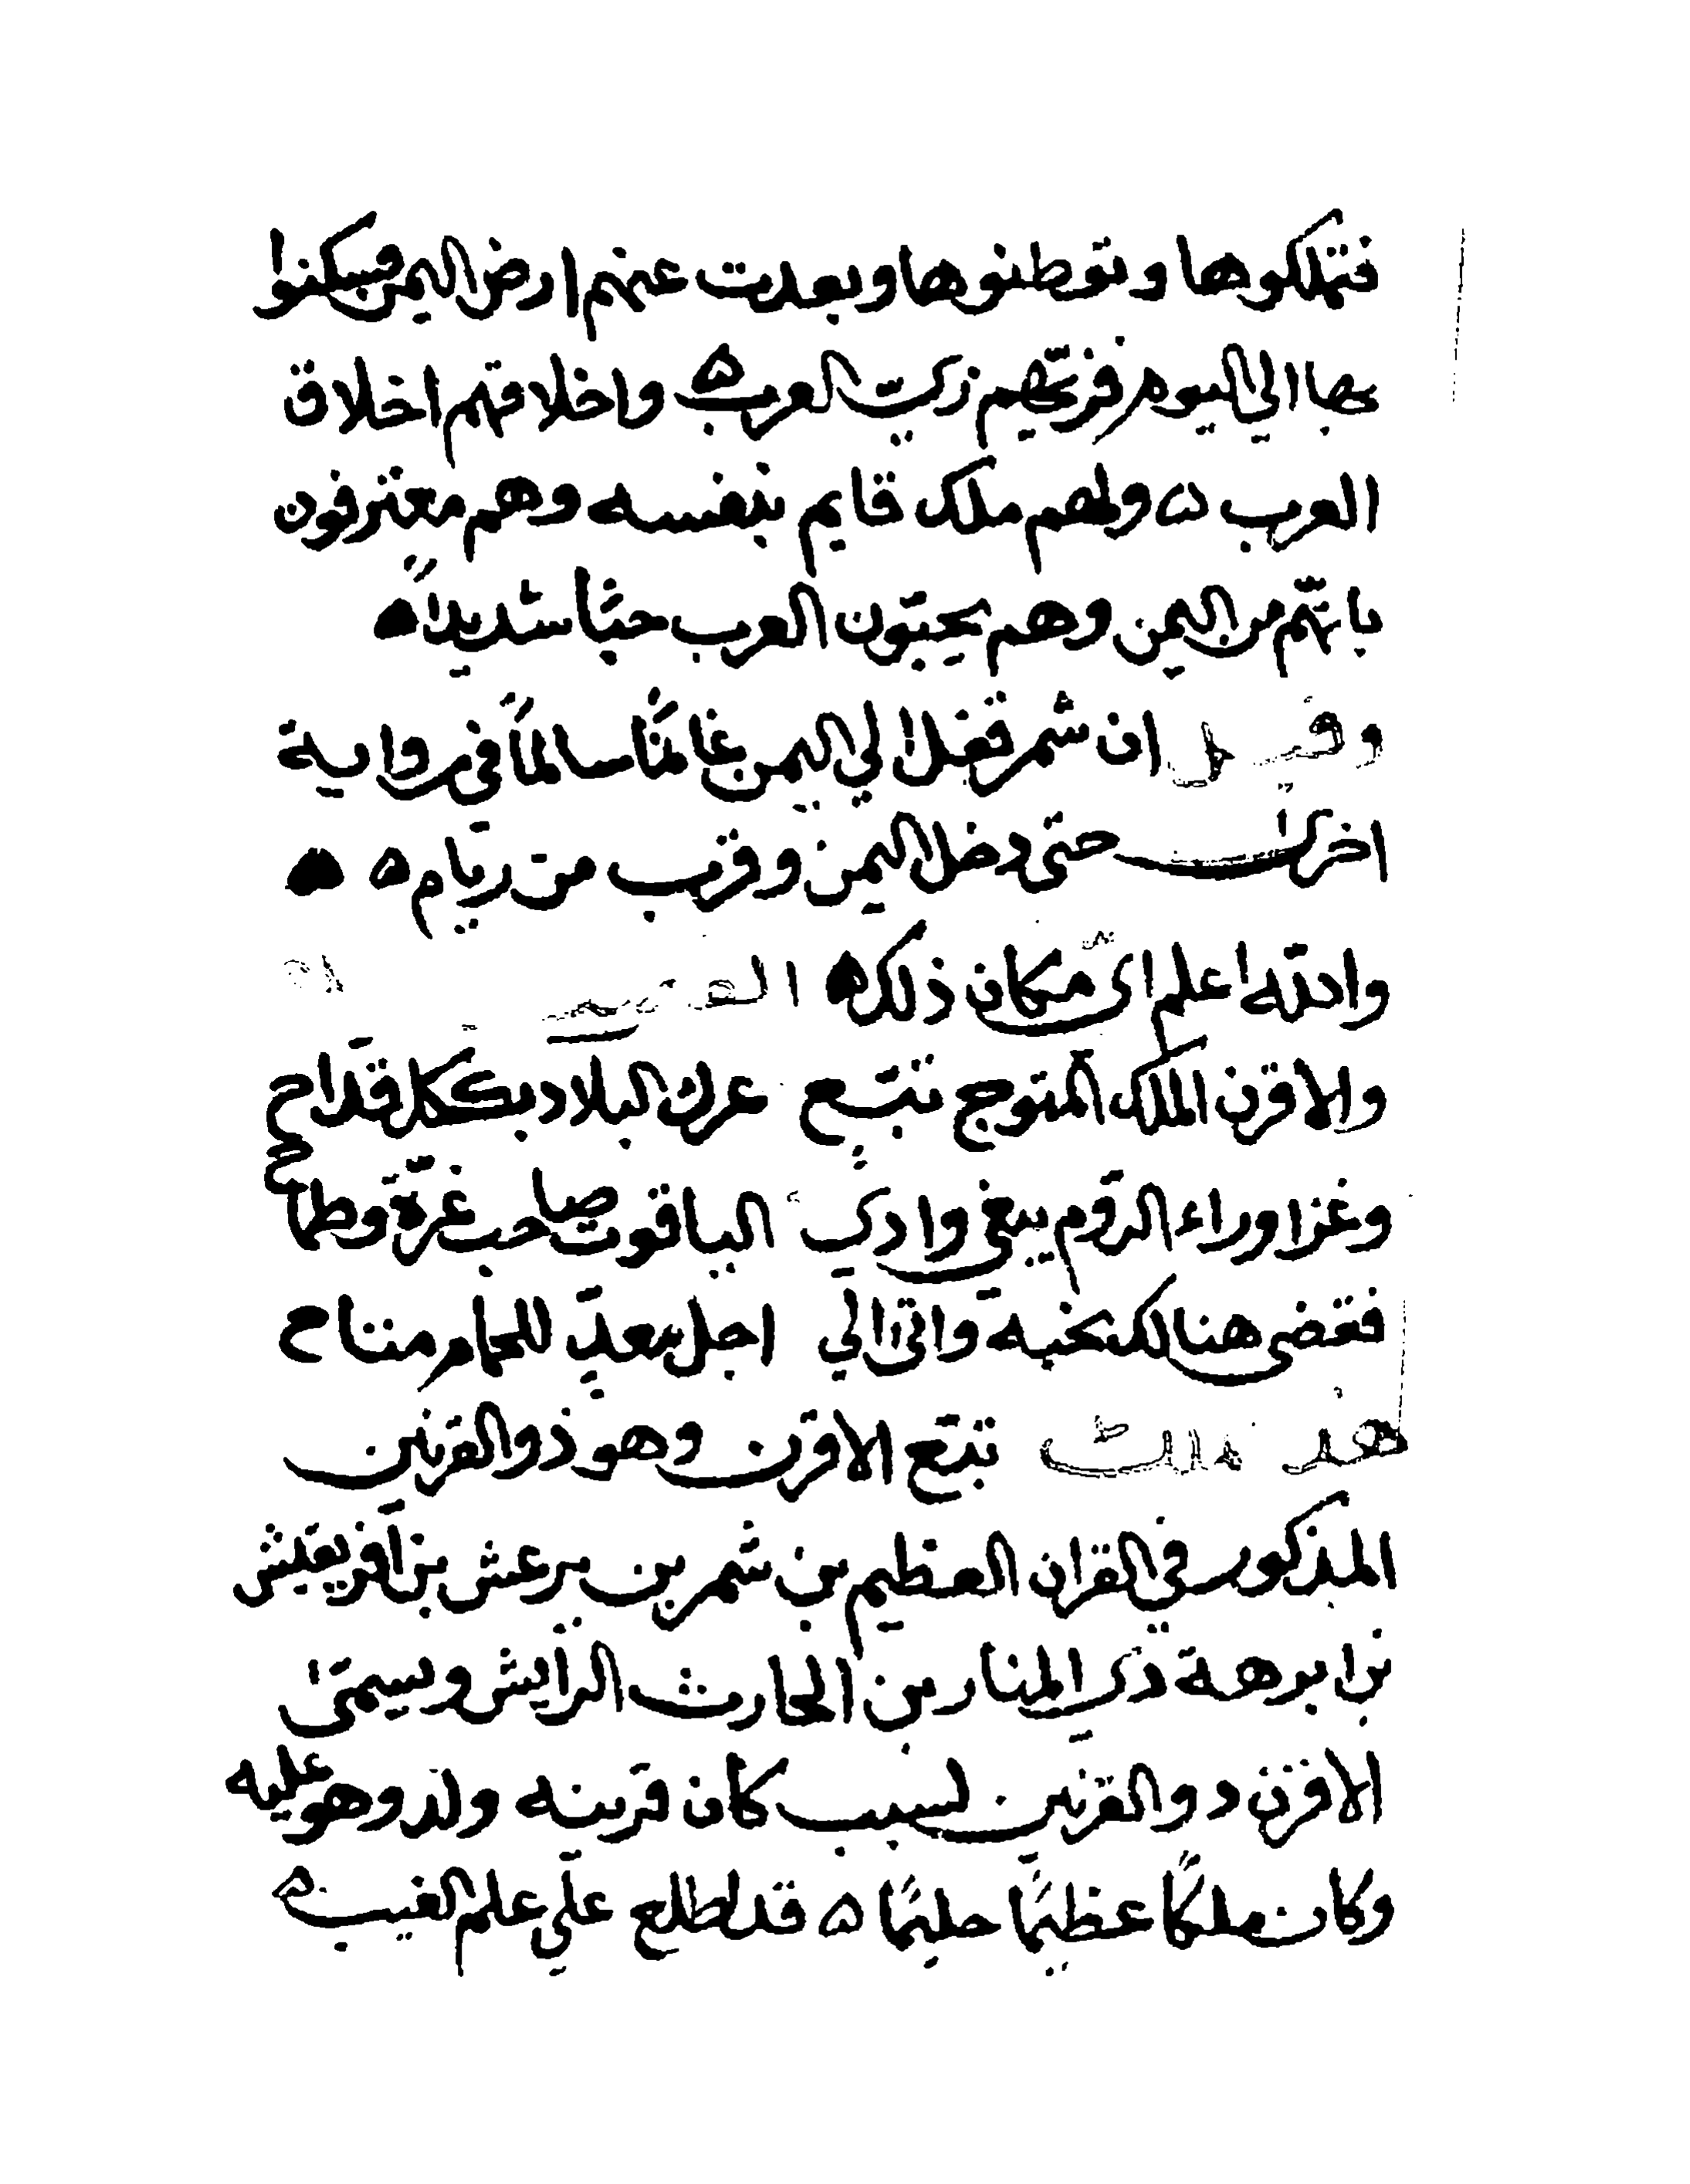 فتملكوها وتوطنوها وبعدت عنهم ارض اليمن فسكنوا
بها الي اليوم فزيهم زي العرب ه واخلاقهم اخلاق
العرب ه ولهم ملك قايم بنفسه وهم معترفون
بانهم من اليمن وهم يحبون العرب حبا شديدا
وقيل ان شمر قفل الي اليمن غانما سالما في رواية
اخرى حتى دخل اليمن وقرب من ريام ه
والله اعلم اى مكان ذلك
والاقرن الملك المتوج تبع عرك البلاد بكلكل قداح
وغزا وراء الروم يبغي وادي الياقوت صاحب غرة وطماح
فقضى هنالك نحبه واتى الي اجل معد للحمام متاح
هذ تبع الاقرن وهو ذو القرنين
المذكور في القران العظيم بن شمر بن يرعش بن افريقيش
بن ابرهة ذي المنار بن الحارث الرايش ويسمى
الاقرن ذو القرنين لسبب كان قرينه ولد وهو عليه
وكان ملكا عظيما حليما ه قد اطلع على علم الغيب ه